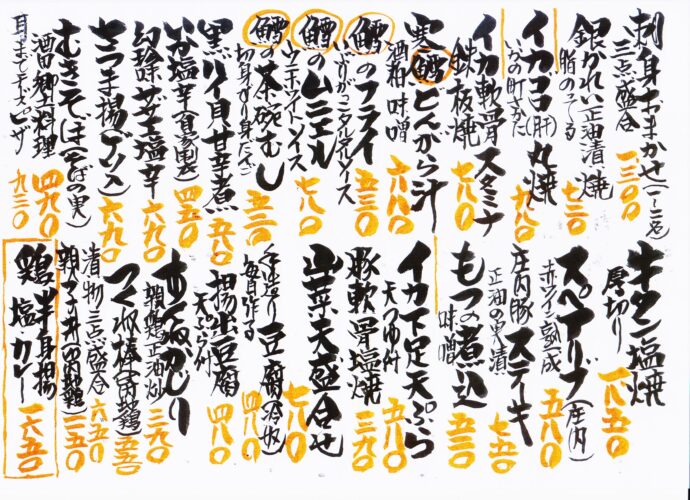 刺身おまかせ(一〜二名)
三点盛合
一三〇〇
銀かれい正油漬焼
脂のってる
七三〇
イカゴロ(肝)丸焼
九八〇
イカ軟骨スタミナ
鉄板焼
七八〇
寒鱈どんがら汁
酒粕味噌
六八〇
鱈のフライ
いぶりがっこタルタルソース
五三〇
鱈のムニエル
ホワイトソース
七八〇
鱈の茶碗むし
切身すり身だんご
五三〇
黒バイ貝甘辛煮
五八〇
いか塩辛(自家製)
四五〇
幻珍ザーサイ塩辛
六九〇
さつま揚(ゲソ入)
六九〇
むきそば(そばの実)
酒田郷土料理
四九〇
耳までチーズピザ
九三〇
牛タン塩焼
厚切り
一八五〇
スペアリブ(庄内)
赤ワイン熟成
五八〇
庄内豚ステーキ
正油の実漬
七五〇
もつ煮込
味噌
五三〇
イカ下足天ぷら
天つゆ付
五八〇
豚軟骨塩焼
三九〇
山菜天盛合せ
七八〇
手造り豆腐(冷奴)
毎日作る
四八〇
揚出豆腐
天ぷら付
四八〇
あんかじり
鶏正油炒
三九〇
つくね棒(庄内鶏)
五五〇
漬物三点盛合
六五〇
親子丼(庄内鶏)
一一五〇
鶏半身揚
塩カレー
一六五〇